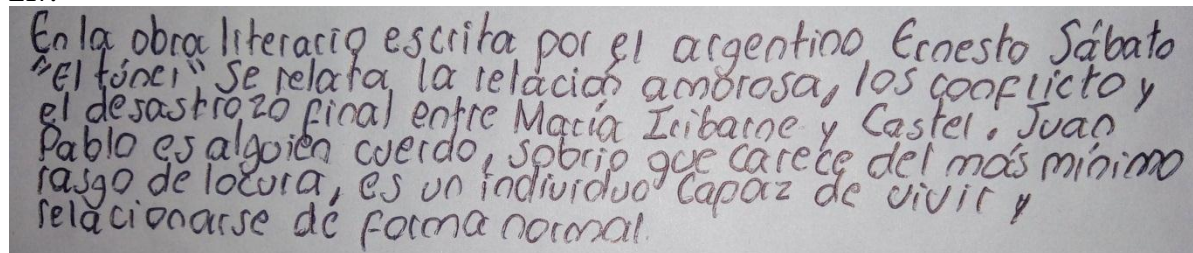 En la obra literaria escrita por el argentino Ernesto Sábato
"El túnel" se relata la relación amorosa, los conflicto y
el desastrozo final entre María Iribarne y Castel. Juan
Pablo es alguien cuerdo, sobrio que carece del más mínimo
rasgo de locura, es un individuo capaz de vivir y
relacionarse de forma normal.